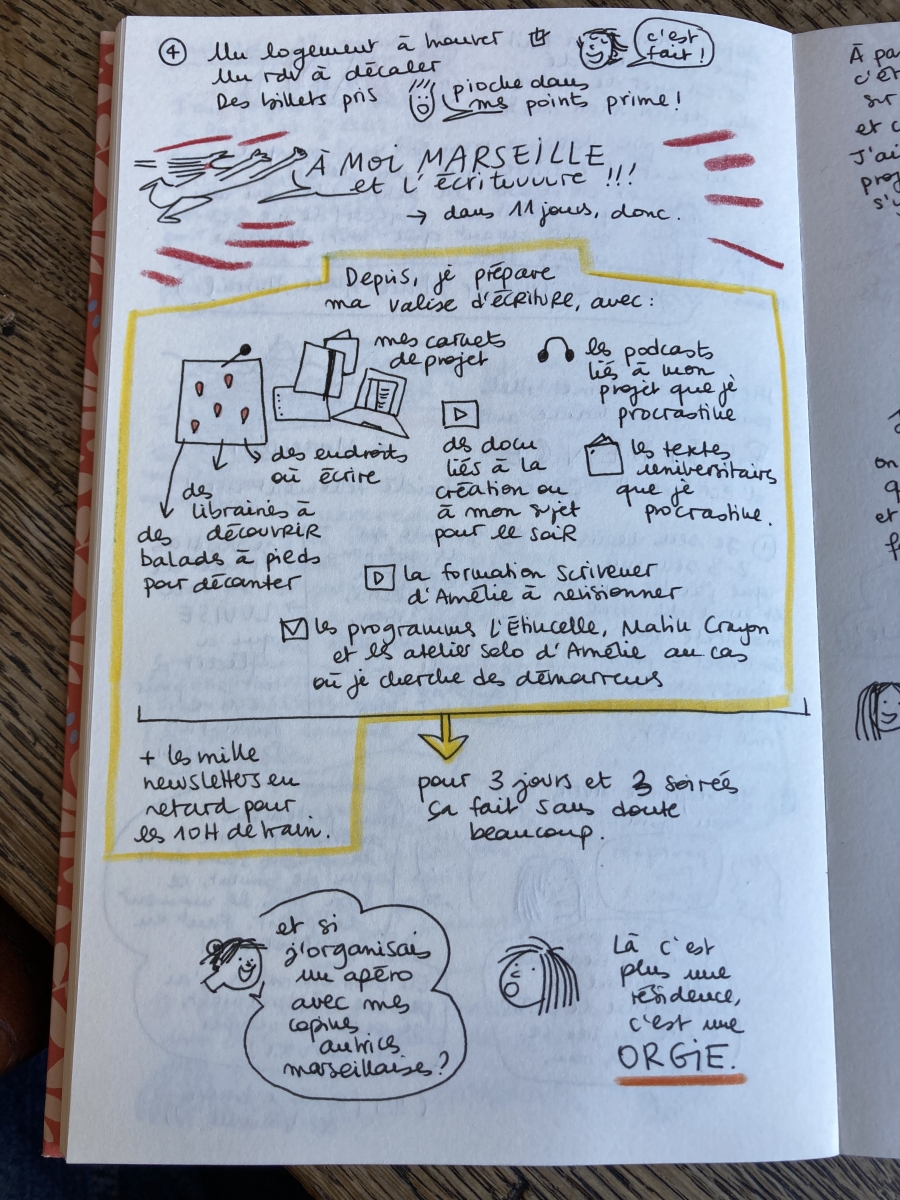 ④ Un logement à trouver
c'est fait !
Un rdv à décaler
Des billets pris
pioche dans
mes points prime !
À MOI MARSEILLE
et l'écrituuuure !!!
→ dans 11 jours, donc.
Depuis, je prépare
ma valise d'écriture, avec :
mes carnets
de projet
les podcasts
liés à mon
projet que je
procrastine
des endroits
où écrire
des
librairies à
découvrir
des
balades à pieds
pour décanter
des docu
liés à la
création ou
à mon sujet
pour le soir
les textes
universitaires
que je
procrastine.
la formation Scrivener
d'Amélie à revisionner
les programmes L'Étincelle, Matin Crayon
et les atelier solo d'Amélie au cas
où je cherche des démarreurs
+ les mille
newsletters en
retard pour
les 10H de train.
pour 3 jours et 3 soirées
ça fait sans doute
beaucoup.
et si
j'organisais
un apéro
avec mes
copines
autrices
marseillaises ?
Là c'est
plus une
résidence,
c'est une
ORGIE.
À pa
c'ét
sur
et c
J'ai
proj
s'
on
q
et
f